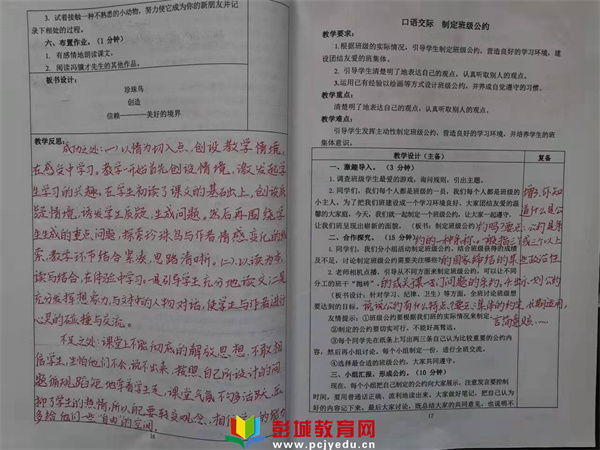 3. 试着接触一种不熟悉的小动物，努力使它成为你的新朋友并记
录下相处的过程。
六、布置作业。（1 分钟）
1. 有感情地朗读课文。
2. 阅读冯骥才先生的其他作品。
板书设计：
珍珠鸟
创造
信赖————美好的境界
教学反思：
成功之处：一、以情为切入点，创设教学情境，
在感受中学习。教学开始首先创设情境，激发起学
生学习的兴趣。在学生初读了课文的基础上，创设质
疑情境，诱发学生质疑，生成问题。然后再围绕学
生生成的重点问题，探索珍珠鸟与作者情感变化的线
索，教学环节结合紧凑，思路清晰。
读与结合，在体验中学习。
充分发挥想象力，与对机人物对话，使学生与作者进行
心灵的碰撞与交流。
不足之处：课堂上不能彻底的解放思想，不敢相
信学生，生怕他们不会，放不出来，按照自己所设计的问
题循规蹈矩地牵着学生走，课堂气氛不够活跃，压
抑了学生的热情，所以
多给他们一些自由的空间。
16
口语交际 制定班级公约
教学要求：
1.根据班级的实际情况，引导学生制定班级公约，营造良好的学习环境，建
设团结友爱的班集体。
2. 引导学生清楚明了地表达自己的观点，认真听取别人的观点。
3.运用已有经验以绘画等方式设计班级公约，并养成自觉遵守的习惯。
教学重点：
清楚明了地表达自己的观点，认真听取别人的观点。
教学难点：
引导学生发挥主动性制定班级公约，营造良好的学习环境，并培养学生的班
集体意识。
教学设计（主备）
复备
一、激趣导入。（3 分钟）
1.调查班级学生最爱的游戏，询问规则，引出主题。
2. 同学们，我们每个人都是班级的一员，我们每个人都是班级的
小主人。为了把我们班建设成一个学习环境良好、大家团结友爱的温
馨的大家庭，今天，我们就一起制定一个班级公约，让大家一起遵守，
让我们班呈现出崭新的面貌。（板书：制定班级公约）
二、合作探究。（15 分钟）
1. 同学们，我们分小组活动制定班级公约，结合班级获得的成绩
及不足，讨论制定班级公约需要关注哪些
2. 老师相机点播，引导从不同方面来制定班级公约，可以让不同
分工的班干“抛砖”
（板书设计：针对学习、纪律、卫生）等方面，全班讨论班级想
要达到的目标。
友情提示：①班级公约要根据我们班的实际情况来制定。
②制定的公约要切实可行，不能好高骛远。
③每个同学先在纸条上写出两三条自己认为比较重要的公约内
容，然后再小组讨论，每个小组制定一份，进行全班交流。
④选择最合适的班级公约，大家共同遵守。
三、小组汇报，形成公约。（10 分钟）
现在，每个小组把自己制定的公约向大家展示，注意发言要控制
时间，要用普通话正确、流利地读出来。大家做好笔记，把自己认为
好的内容记下来，最后大家讨论，既总结大家的共同意见，也说明不
17
彭城教育网
www.pcjyedu.cn